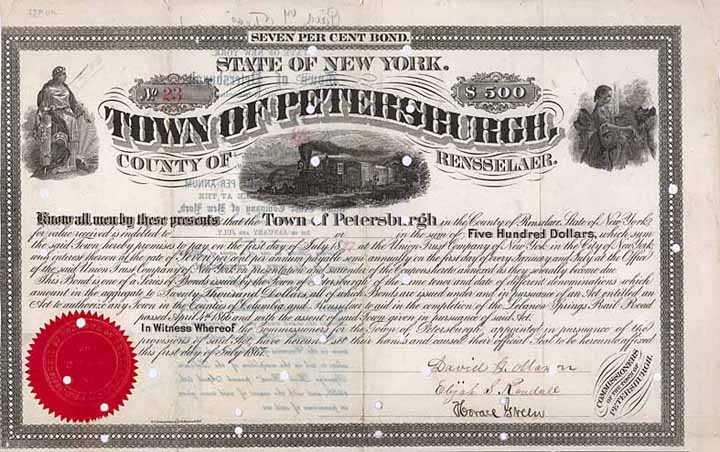 SEVEN PER CENT BOND.
STATE OF NEW YORK.
No 23
$ 500
TOWN OF PETERSBURGH,
COUNTY OF RENSSELAER.
Know all men by these presents that the Town of Petersburgh in the County of Rensselaer, State of New York,
for value received is indebted to or in the sum of Five Hundred Dollars, which sum
the said Town hereby promises to pay on the first day of July 18 at the Union Trust Company of New York in the City of New York
with interest thereon at the rate of Seven per cent per annum payable semi annually on the first day of every January and July at the Office
of the said Union Trust Company of New York on presentation and surrender of the coupons hereto annexed as they severally become due.
This Bond is one of a Series of Bonds issued by the Town of Petersburgh of the same tenor and date of different denominations which
amount in the aggregate to Twenty Thousand Dollars, all of which Bonds are issued under and in pursuance of an Act entitled an
Act to authorize any Town in the Counties of and Rensselaer to aid in the completion of the Lebanon Springs Rail Road
passed April 1866 and with the assent of said Town given in pursuance of said Act.
In Witness Whereof the commissioners for the Town of Petersburgh, appointed in pursuance of the
provisions of said Act, have hereunto set their hands and caused their official Seal to be hereunto affixed
this first day of July 1867.
David
Elijah S Randall
Horace Green
COMMISSIONERS
OF THE TOWN OF
PETERSBURGH.